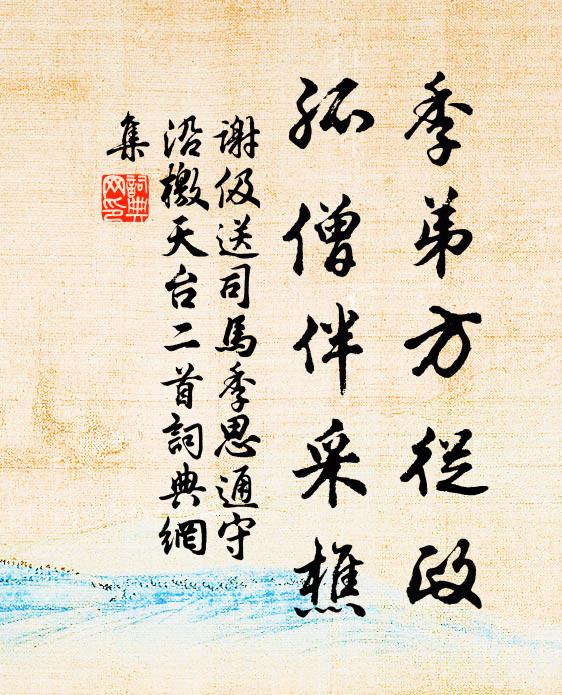 季弟方從政
孤僧伴采樵
謝伋送司馬季思通守
沿檄天台二首詞典網
集
詞典
网印